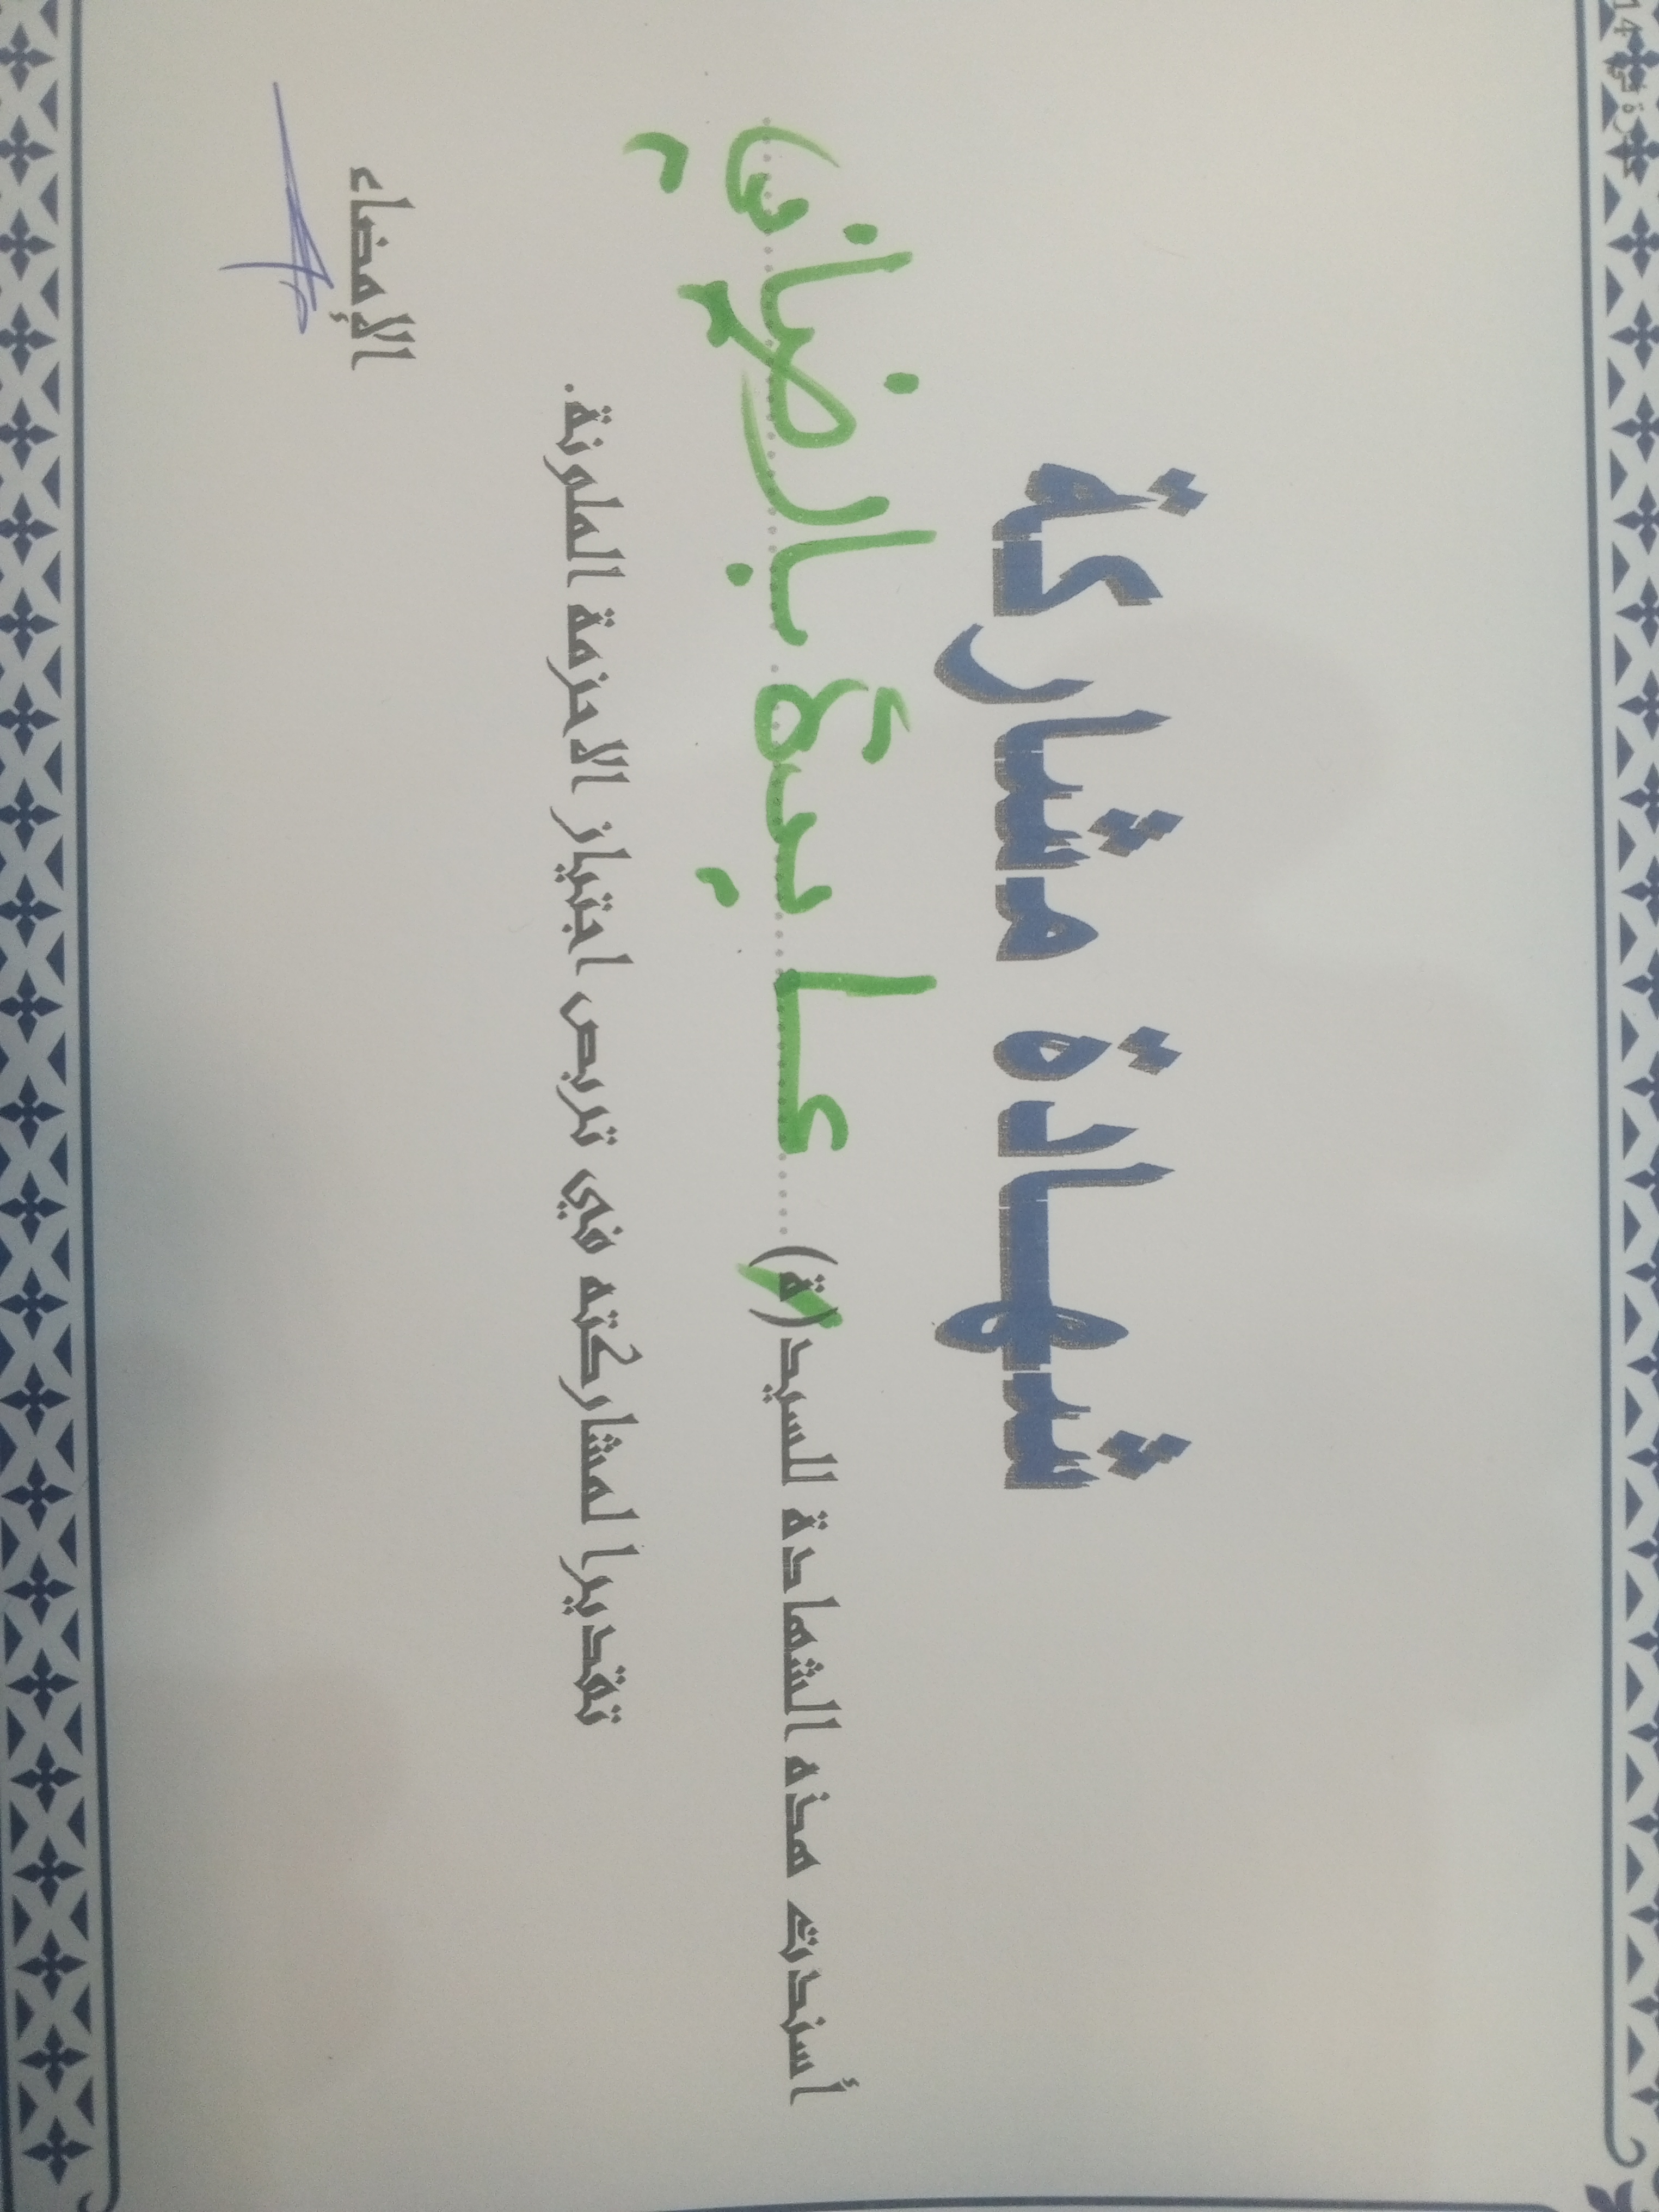 شهادة مشاركة
أسندت هذه الشهادة للسيد(ة) عايدة
تقديرا لمشاركته في تربص اجتياز الاحزمة الملونة.
الإمضاء